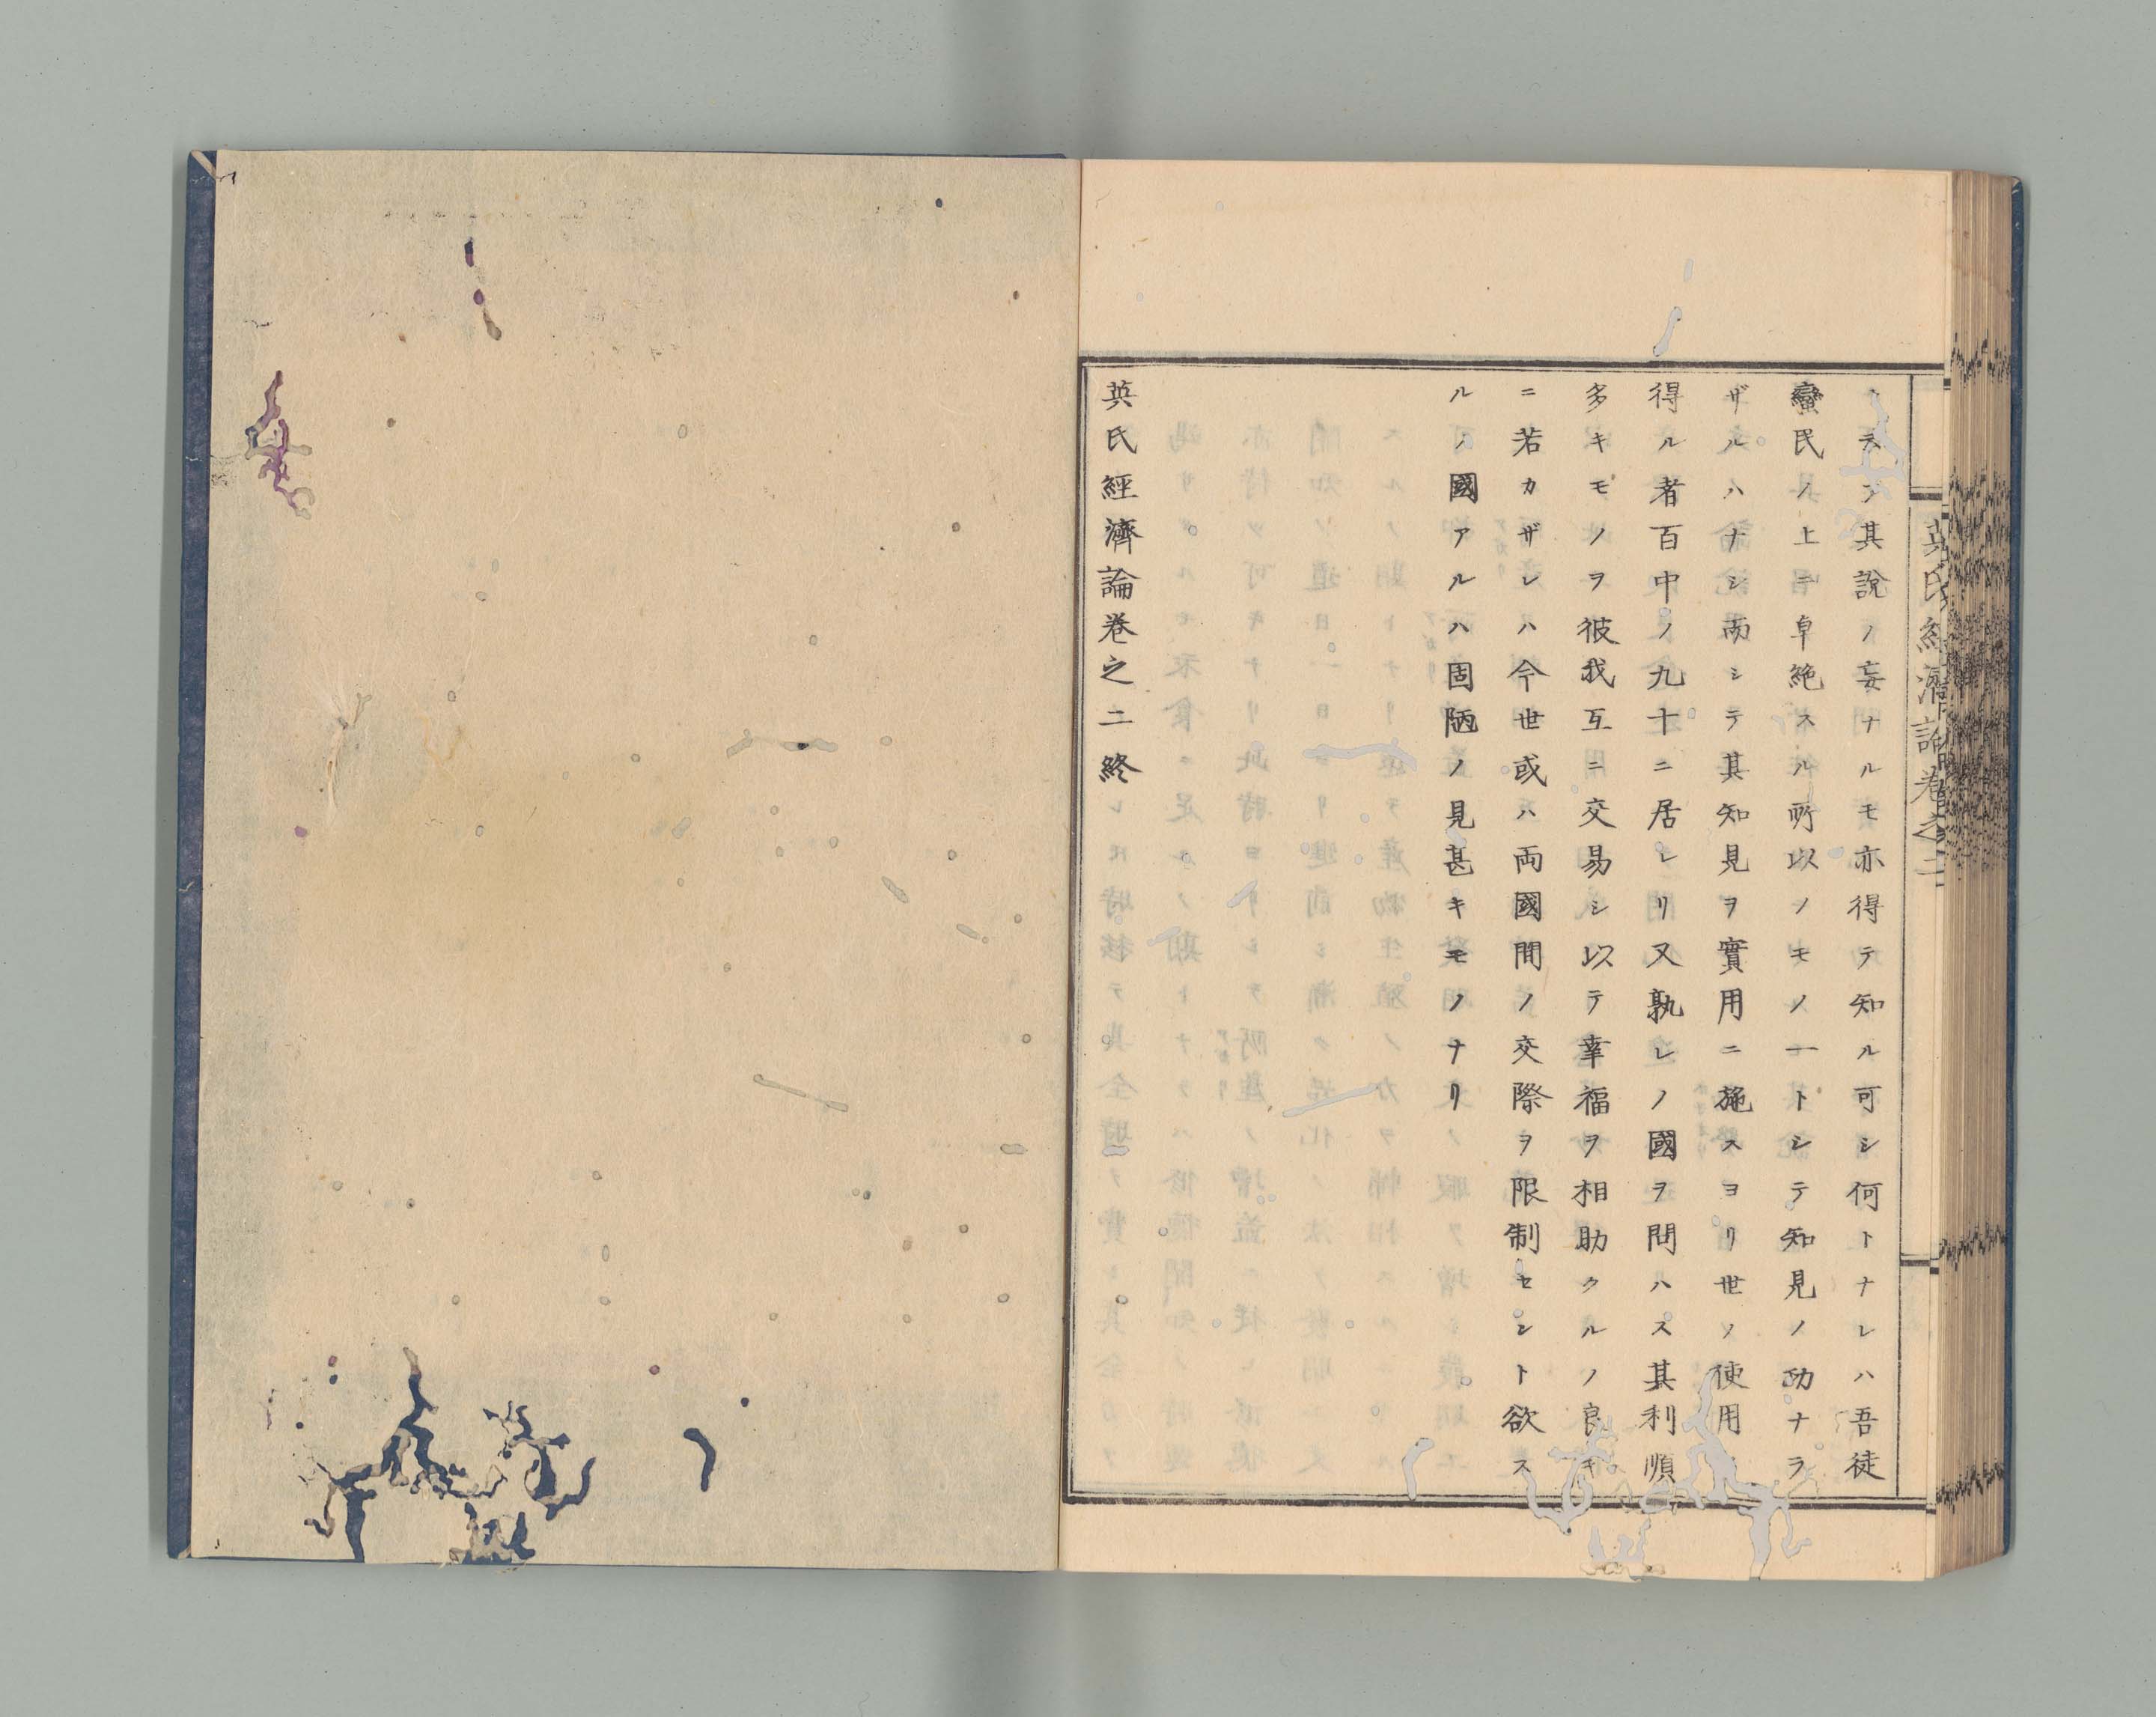 英氏經濟論卷之二
其說ノ妄ナルモ亦得テ知ル可シ何トナレハ吾徒
蠻民ノ上ニ卓絶スル所以ノモノ一トシテ知見ノ功ナラ
ザルハナシ而シテ其知見ヲ實用ニ施スヨリ世ノ使用
得ル者百中ノ九十ニ居レリ又孰レノ國ヲ問ハス其利順
多キモノヲ彼我互ニ交易シ以テ幸福ヲ相助クルノ良キ
ニ若カザレハ今世或ハ両國間ノ交際ヲ限制セント欲ス
ルノ國アルハ固陋ノ見甚キモノナリ
英氏經濟論卷之二終